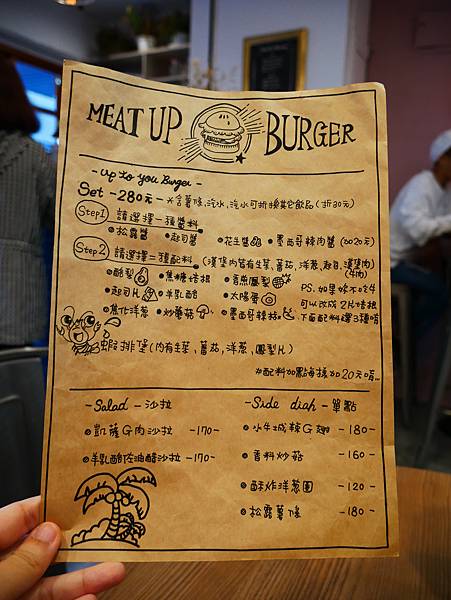 MEAT UP BURGER
- Up to you Burger -
Set - 280元 - *含薯條,汽水,汽水可折換其它飲品(折30元)
Step1 請選擇一種醬料
松露醬 起司醬 花生醬 墨西哥辣肉醬(加20元)
Step2 請選擇二種配料(漢堡內皆有生菜,番茄,洋蔥,起司,漢堡肉)(牛肉)
酪梨 焦糖培根 香煎鳳梨 PS.如果妳不吃牛
起司片 羊乳酪 太陽蛋 可以改成2片培根
焦化洋蔥 炒蘑菇 墨西哥辣椒 下面配料選3種唷
蝦排堡(內有生菜、蕃茄,洋蔥,鳳梨片)
#配料加點每樣加20元唷~
- Salad - 沙拉
凱薩G肉沙拉 -170-
羊乳酪佐油醋沙拉 -170-
- Side dish - 單點
水牛城辣G翅 -180-
香料炒菇 -160-
酥炸洋蔥圈 -120-
松露薯條 -180-